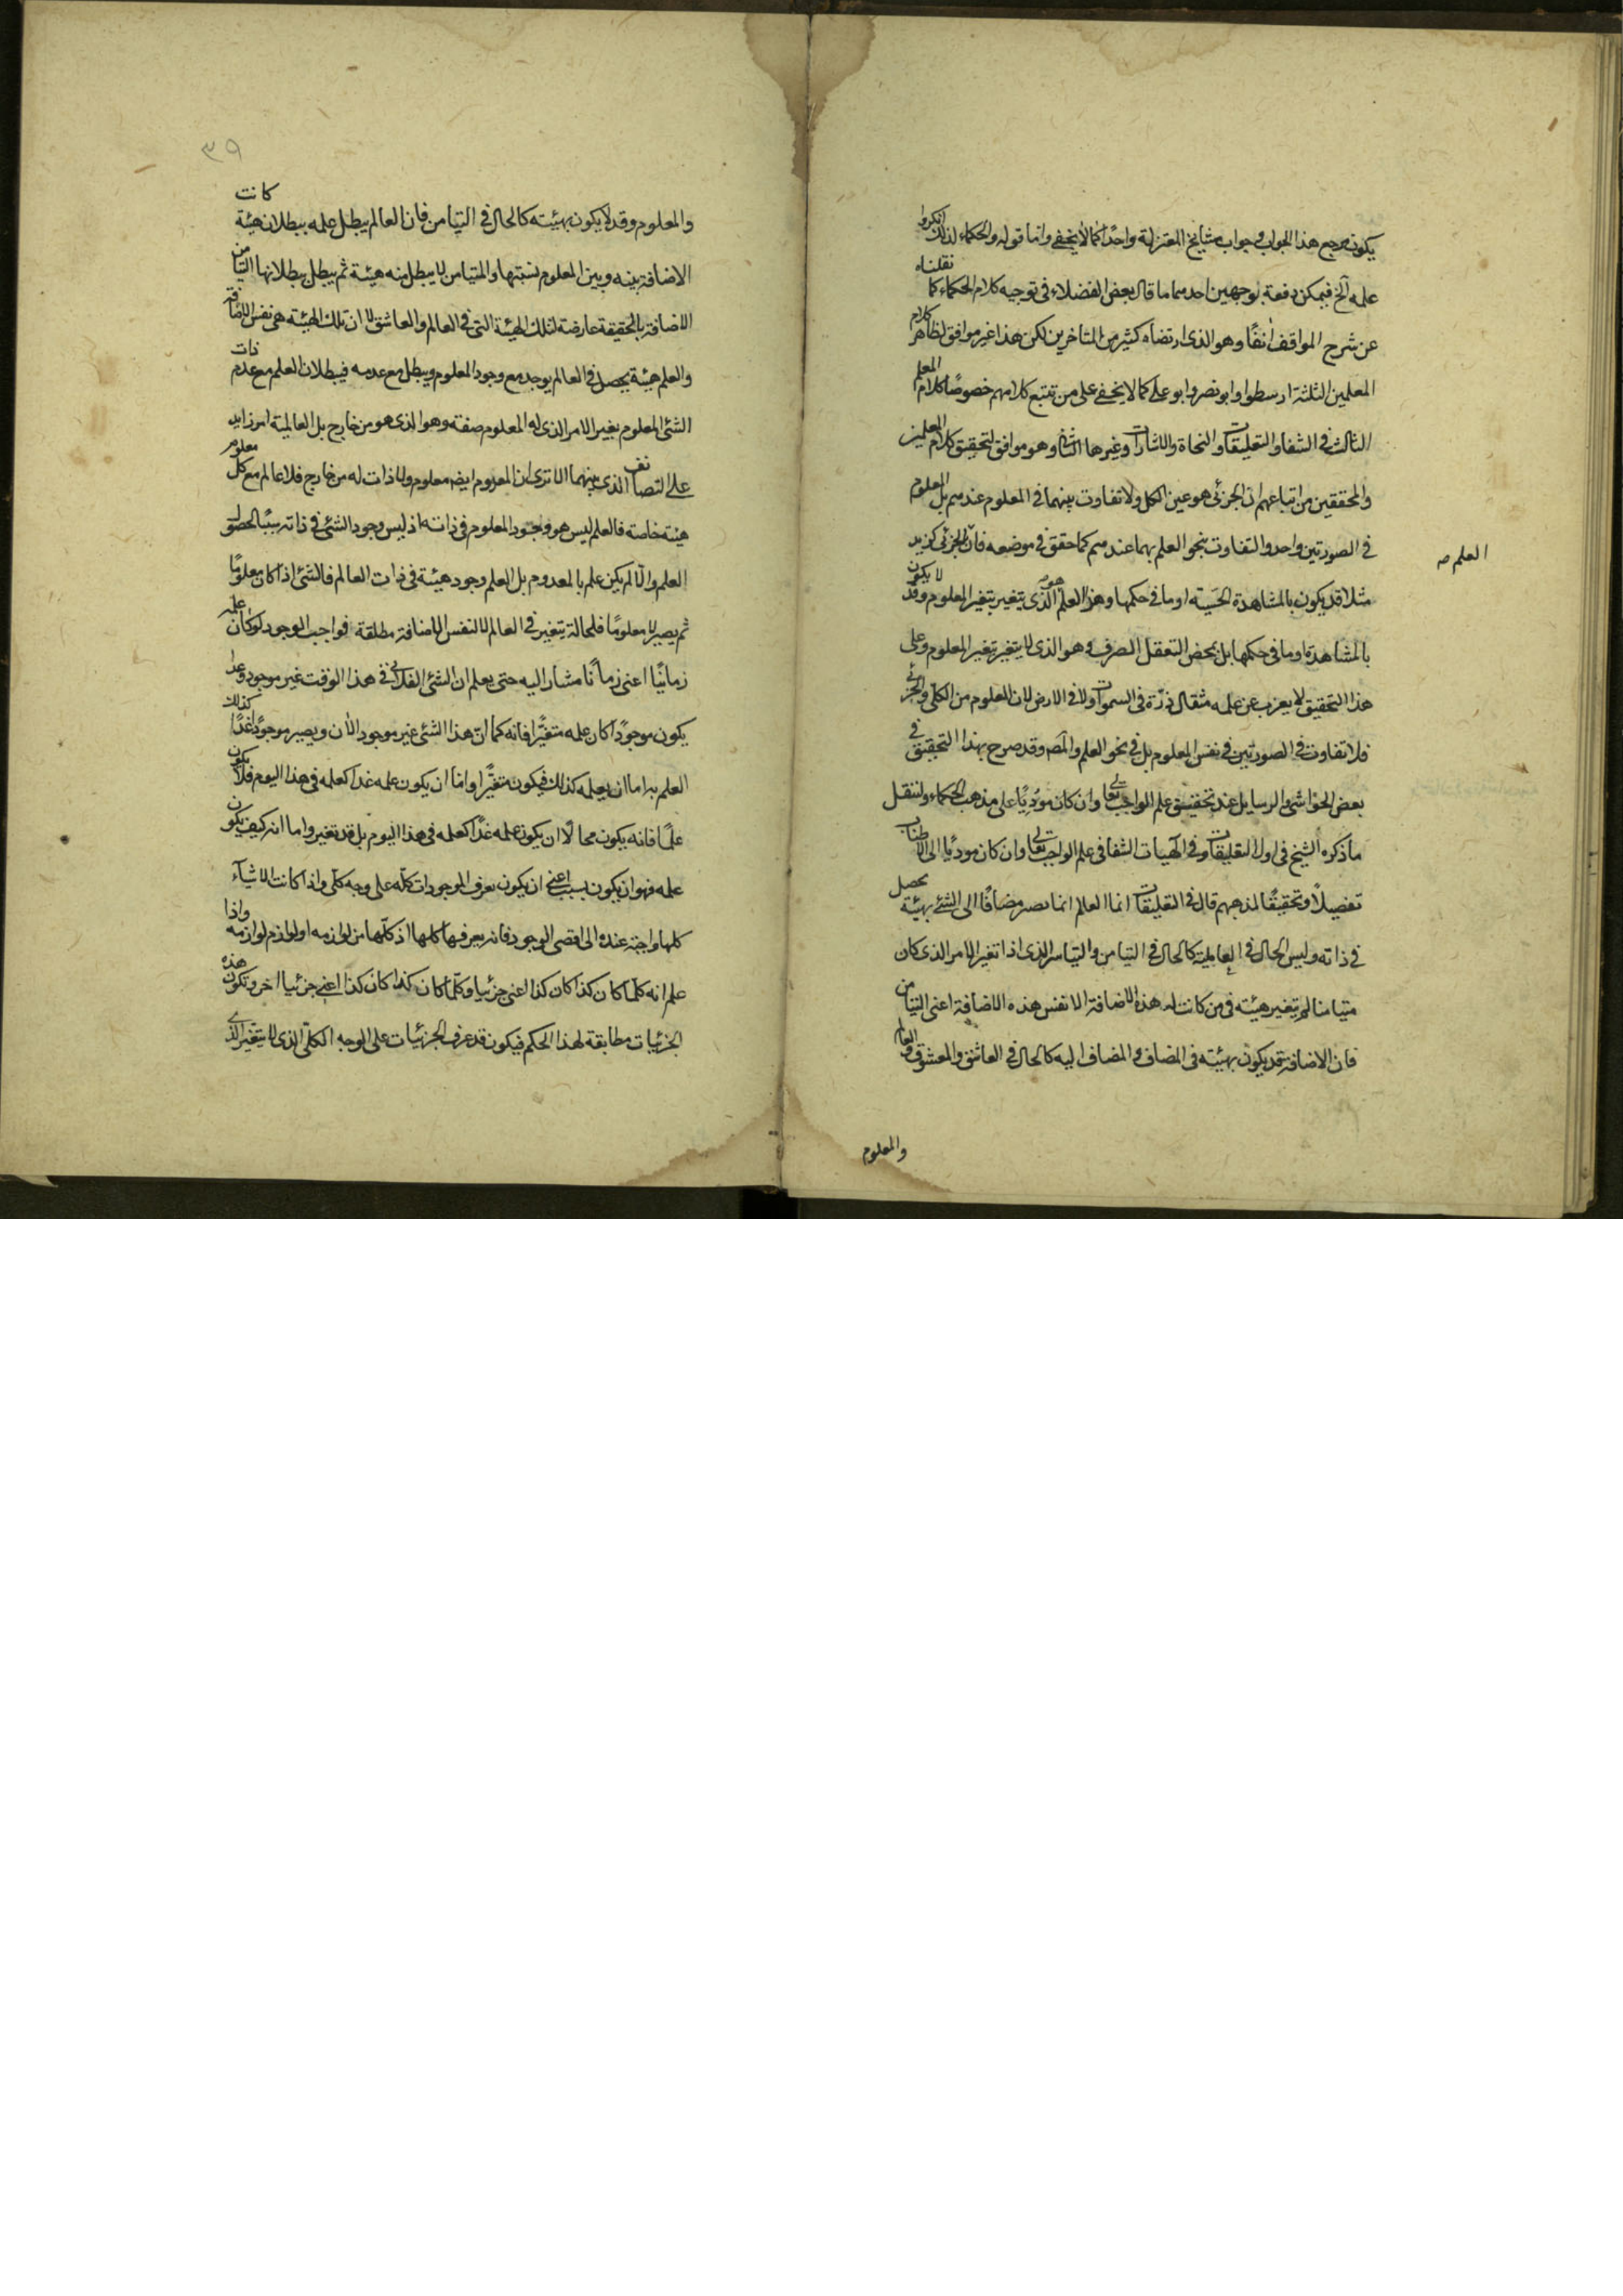 يكون مرجع هذا الجواب وجواب مشايخ المعتزلة واحدًا كما لا يخفى واما قوله والحكماء لذلك انكروا
علمه آلخ فيمكن دفعه بوجهين احدهما ما قال بعض الفضلاء فى توجيه كلام الحكماء كما نقلناه
عن شرح المواقف انفًا وهو الذى ارتضاه كثير من المتاخرين لكن هذا غير موافق لظاهر كلام
المعلمين الثلثة ارسطوا وابو نصر وابو على كما لا يخفى على من تتبع كلامهم خصوصًا كلام المعلم
الثالث فى الشفا والتعليقات والنجاة والاشارات وغيرها الثانى وهو موافق لتحقيق كلام المعلمين
والمحققين من اتباعهم ان الجزئى هو عين الكل ولا تفاوت بينهما فى المعلوم عندهم بل المعلوم
فى الصورتين واحد والتفاوت بنحو العلم بهما عندهم كما حقق فى موضعه فان الجزئى كزيد
العلم صہ
مثلا قد يكون بالمشاهدة الحسية او ما فى حكمها وهذا العلم هو الذى يتغير بتغير المعلوم وقد لا يكون
بالمشاهدة او ما فى حكمها بل بمحض التعقل الصرف وهو الذى لا يتغير بتغير المعلوم وعلى
هذا التحقيق لا يعزب عن علمه مثقال ذرّة فى السموات ولا فى الارض لان المعلوم من الكلى والجزئى
فلا تفاوت فى الصورتين فى نفس المعلوم بل فى نحو العلم والمصہ وقد صرح بهذا التحقيق فى
بعض الحواشى والرسايل عند تحقيق علم الواجب تعالى وان كان موديًا على مذهب الحكماء ولننقل
ما ذكره الشيخ فى اول التعليقات وفى آلهيات الشفا فى علم الواجب تعالى وان كان موديًا الى الاطناب
تفصيلًا وتحقيقًا لمذهبهم قال فى التعليقات انما العالم انما يصير مضافًا الى الشئ بهيئة يحصل
فى ذاته وليس الحال فى العالمية كالحال فى التيامن والتياسر الذى اذا تغير الامر الذى كان
متيامنا لم يتغير هيئته فى من كانت له هذه الاضافة الا نفس هذه الاضافة اعنى التيامن
فان الاضافة قد يكون بهيئته فى المضاف والمضاف اليه كالحال فى العاشق والمعشوق والعالم
والمعلوم
٣٩
والمعلوم وقد لا يكون بهيئته كالحال فى التيامن فان العالم يبطل علمه ببطلان هيئة كانت
الاضافة بينه وبين المعلوم بسببها والمتيامن لا يبطل منه هيئة ثم يبطل ببطلانها التيامن
الاضافة بالحقيقة عارضة لتلك الهيئة التى فى العالم والعاشق لا ان تلك الهيئة هى نفس الاضافة
والعلم هيئة يحصل فى العالم يوجد مع وجود المعلوم ويبطل مع عدمه فيبطلان العلم مع عدم ذات
الشئ المعلوم بغير الامر الذى له المعلوم صفة وهو الذى هو من خارج بل العالمية امر زايد
على التضايف الذى بينهما الا ترى ان المعدوم ايضہ معلوم ولا ذات له من خارج فلا عالم مع كل معلوم
هيئة خاصة فالعلم ليس هو وجود المعلوم فى ذاته اذ ليس وجود الشئ فى ذاته سببًا لحصول
العلم والا لم يكن علم بالمعدوم بل العلم وجود هيئة فى ذات العالم فالشئ اذا كان معلومًا
ثم يصير لا معلومًا فلمحالة يتغير فى العالم لا لنفس الاضافة مطلقة فواجب الوجود لو كان علمه
زمانيًا اعنى زمانًا مشارا اليه حتى يعلم ان الشئ الفلانى فى هذا الوقت غير موجود وغدا
يكون موجودًا كان علمه متغيّرا فانه كما ان هذا الشئ غير موجود الان ويصير موجودًا غدًا كذلك
العلم به اما ان يعلمه كذلك فيكون متغيّرا واما ان يكون علمه غدا كعلمه فى هذا اليوم فلا يكون
علمًا فانه يكون محالًا ان يكون علمه غدًا كعلمه فى هذا اليوم بل قد تغير واما انه كيف يكون
علمه فهو ان يكون بسبب اعنى ان يكون يعرف الموجودات كلّه على وجه كلّى واذا كانت الاشيآء
كلها واجبة عنده الى اقصى الوجود فانه يعرفها كلها اذ كلّها من لوازمه او لوازم لوازمه واذا
علم انه كلّما كان كذا كان كذا اعنى جزئيا وكلّما كان كذا كان كذا اعنى جزئيا اخر وتكون هذه
الجزئيات مطابقة لهذا الحكم فيكون قد عرف الجزئيات على الوجه الكلّى الذى لا يتغير الذى